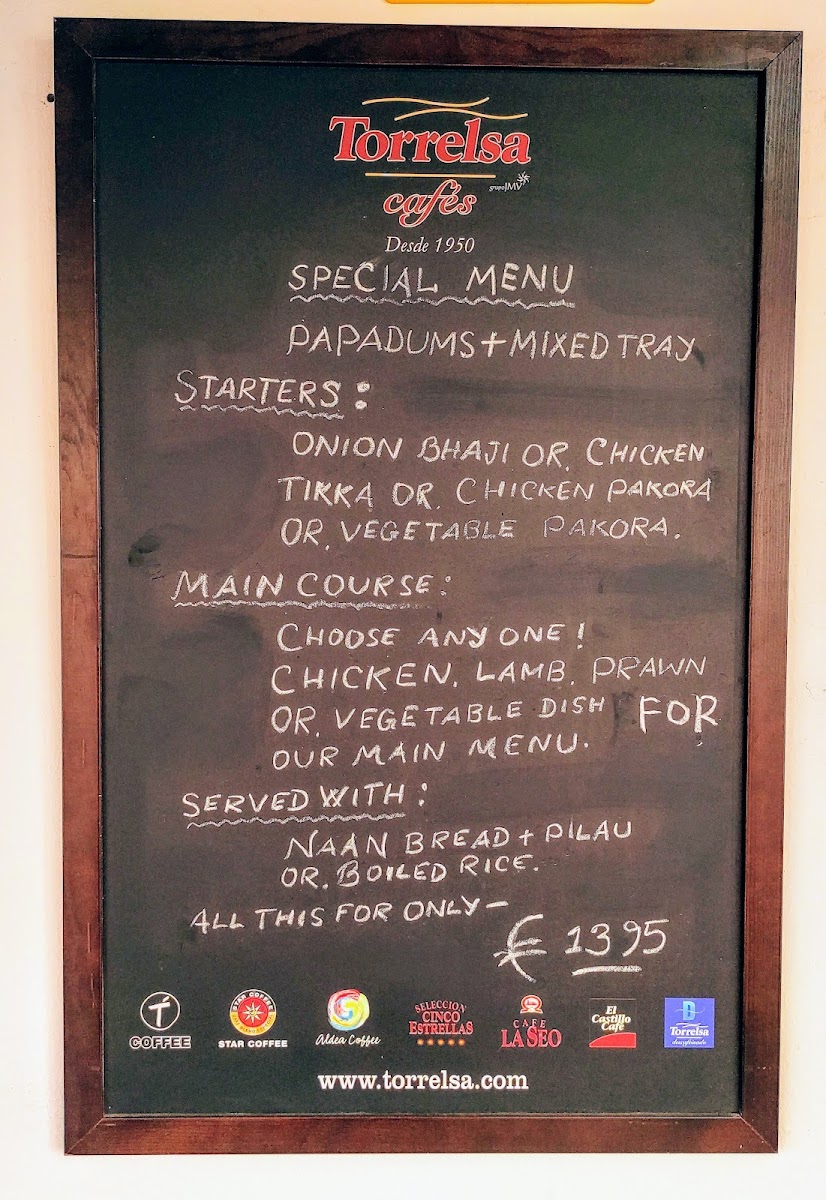 Torrelsa
grupo JMV
cafés
Desde 1950
SPECIAL MENU
PAPADUMS + MIXED TRAY
STARTERS :
ONION BHAJI OR. CHICKEN
TIKKA OR. CHICKEN PAKORA
OR. VEGETABLE PAKORA.
MAIN COURSE :
CHOOSE ANY ONE !
CHICKEN. LAMB. PRAWN
OR. VEGETABLE DISH FOR
OUR MAIN MENU.
SERVED WITH :
NAAN BREAD + PILAU
OR. BOILED RICE.
ALL THIS FOR ONLY —
€ 13 95
COFFEE
STAR COFFEE
STAR COFFEE
Aldea Coffee
SELECCION
CINCO
ESTRELLAS
CAFE
LA SEO
El
Castillo
Café
D
Torrelsa
www.torrelsa.com